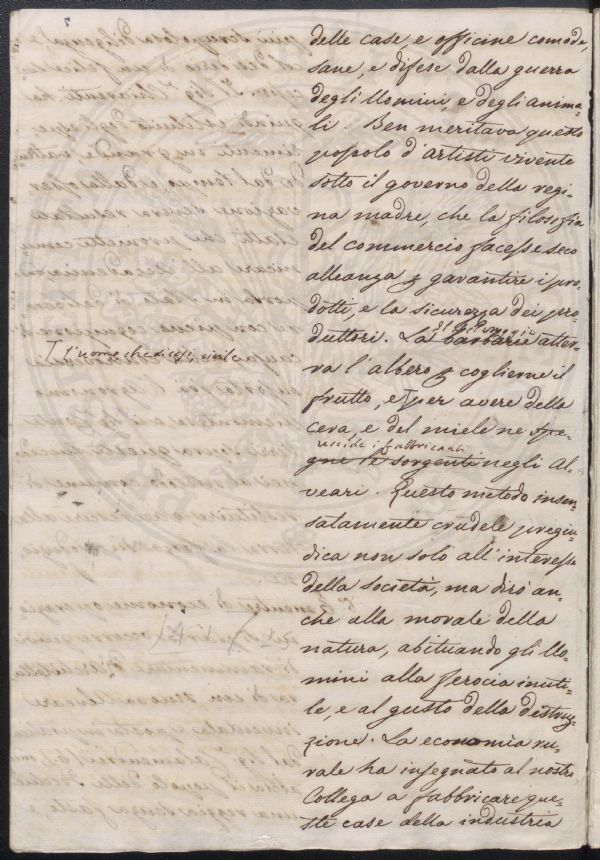 7
delle case e officine comode,
sane, e difese dalla guerra
degli Uomini, e degli anima-
li. Ben meritava questo
popolo d'artisti vivente
sotto il governo della regi-
na madre, che la filosofia
del commercio facesse seco
alleanza p garantire i pro-
dotti, e la sicurezza dei pro-
il selvaggio
duttori. La barbarie atter-
ra l'albero p coglierne il
T l'uomo che dicesi, civile
frutto, e T per avere della
cera, e del miele ne spe-
uccide i fabbricanti
gne le sorgenti negli Al-
veari. Questo metodo insen-
satamente crudele pregiu-
dica non solo all'interesse
della società, ma dirò an-
che alla morale della
natura, abituando gli Uo-
mini alla ferocia inuti-
le, e al gusto della distru-
zione. La economia ru-
rale ha insegnato al nostro
Collega a fabbricare que-
ste case della industria